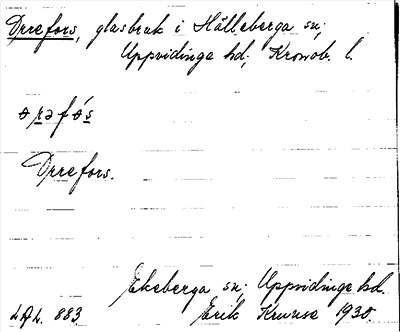 Orrefors, glasbruk i Hälleberga sn;
Uppvidinge hd; Kronob. l.
Orrefors.
Ekeberga sn; Uppvidinge hd.
L.A.L. 883. Erik Kruuse 1930.